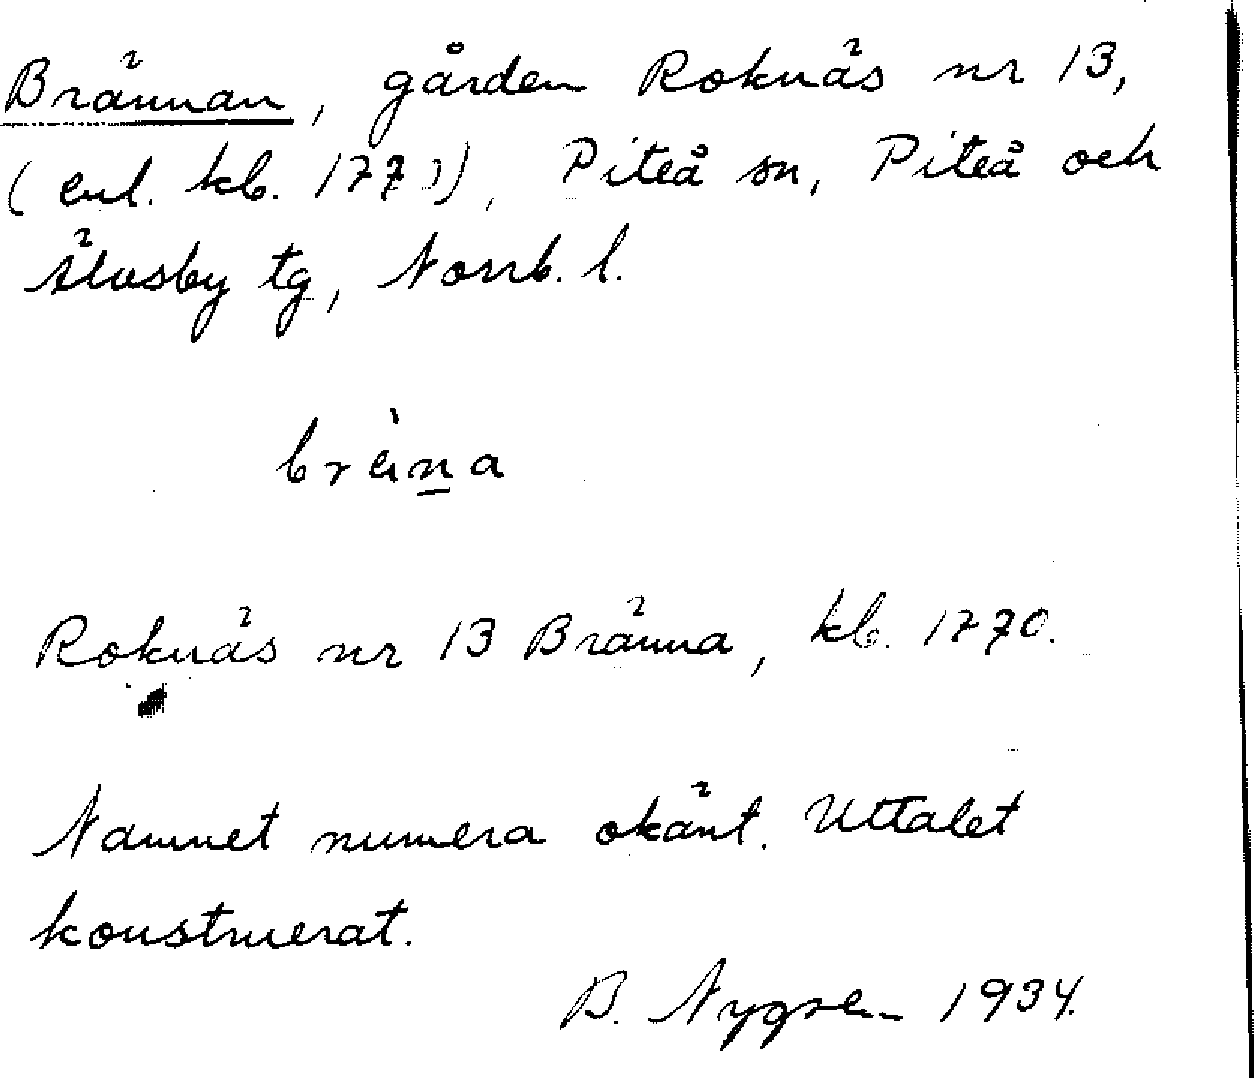 Brännan, gården Roknäs nr 13,
(enl. kb. 1770), Piteå sn, Piteå och
Älvsby tg, Norrb. l.
brä̀n̲a
Roknäs nr 13 Bränna, kb. 1770.
Namnet numera okänt. Uttalet
konstruerat.
B. Nygren 1934.